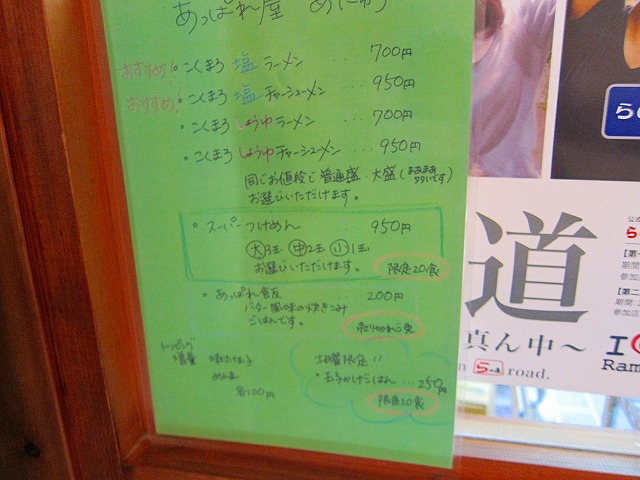 あっぱれ屋 めにゅう
おすすめ! ・こくまろ 塩 ラーメン ... 700円
おすすめ! ・こくまろ 塩 チャーシューメン ... 950円
・こくまろ しょうゆ ラーメン ... 700円
・こくまろ しょうゆ チャーシューメン ... 950円
同じお値段で 普通盛・大盛(まあまあ多いです)
お選びいただけます。
・スーパーつけめん ... 950円
大3玉 中2玉 小1玉
お選びいただけます。
限定20食
・あっぱれ食反 ... 200円
バター風味の炊きこみ
ごはんです。
売り切れご免
トッピング
増量
味付け玉子
めんま
各100円
土曜限定!!
・玉子かけごはん ... 250円
限定20食
道
真ん中～
road.
公式
【第一
期間
参加店
【第二
期間:2
参加店
I
Ram